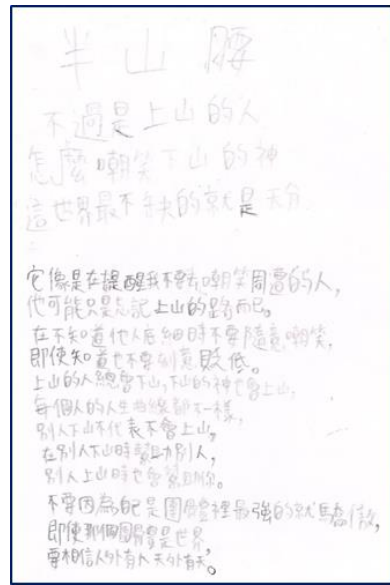 半山腰
不過是上山的人
怎麼嘲笑下山的神
這世界最不缺的就是天分
它像是在提醒我不要去嘲笑周遭的人,
他可能只是忘記上山的路而已。
在不知道他人底細時不要隨意嘲笑,
即使知道也不要刻意貶低。
上山的人總會下山,下山的神也會上山,
每個人的人生曲線都不一樣,
別人下山不代表不會上山。
在別人下山時幫助別人,
別人上山時也會幫助你。
不要因為自己是團體裡最強的就驕傲,
即使那個團體是世界,
要相信人外有人天外有天。